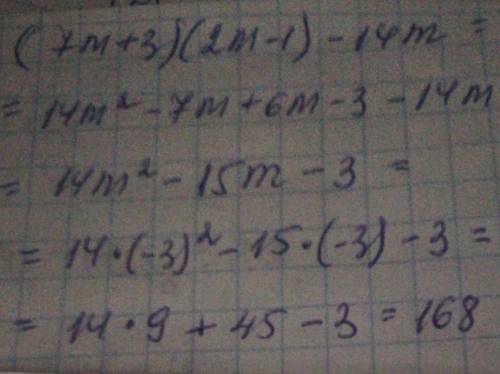 (7m+3)(2m-1) - 14m =
= 14m² - 7m + 6m - 3 - 14m
= 14m² - 15m - 3 =
= 14·(-3)² - 15·(-3) - 3 =
= 14·9 + 45 - 3 = 168